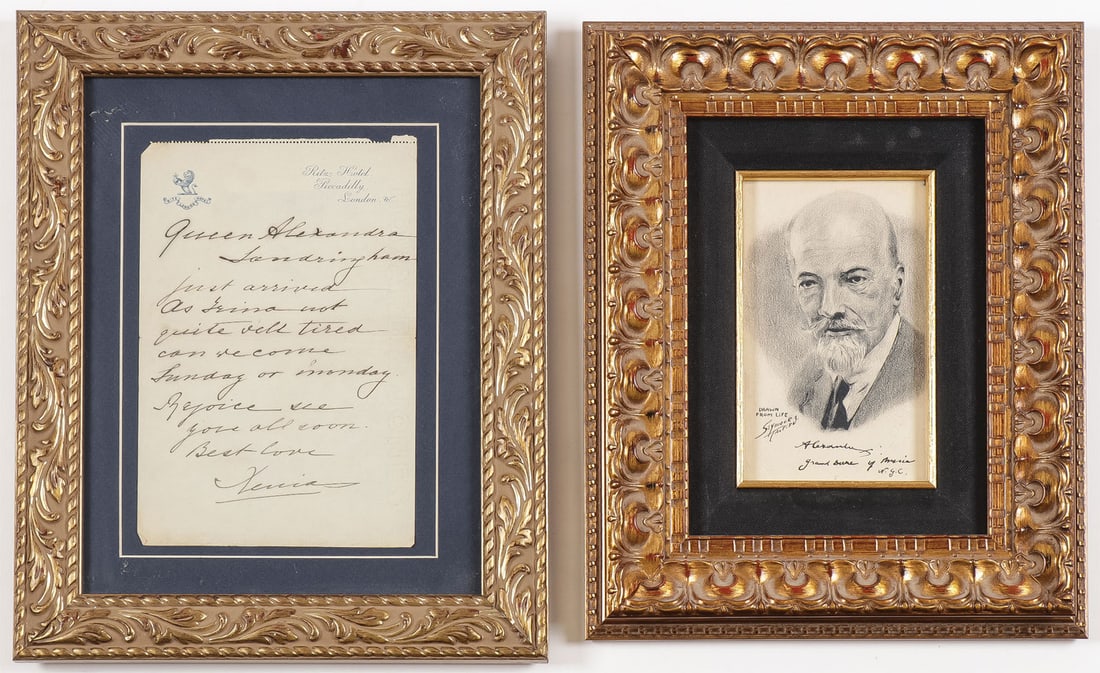 Ritz Hotel
Piccadilly
London. W.
Queen Alexandra
Sandringham
just arrived
As Irina not
quite well tired
can we come
Sunday or monday.
Rejoice see
you all soon.
Best love
Xenia
DRAWN
FROM LIFE
Alexander
Grand Duke of Russia
N.Y.C.